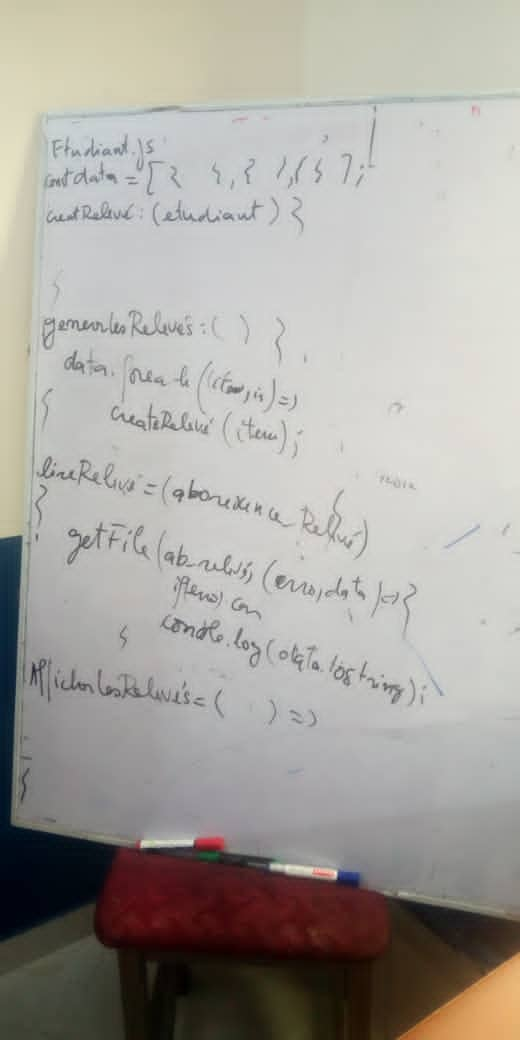 Etudiant.js
const data = [{ }, { }, { } ];
creatRelevé: (etudiant) }
}
generLesRelevés: ( ) }
data.foreach ((item, is) =>
{ createRelevé (item);
lireRelivé = (
}
getFile (ab_relivé, (erro, data) => {
if(erro) con
} console.log(data.tostring);
AfficherLesRelevés = ( ) =>
}